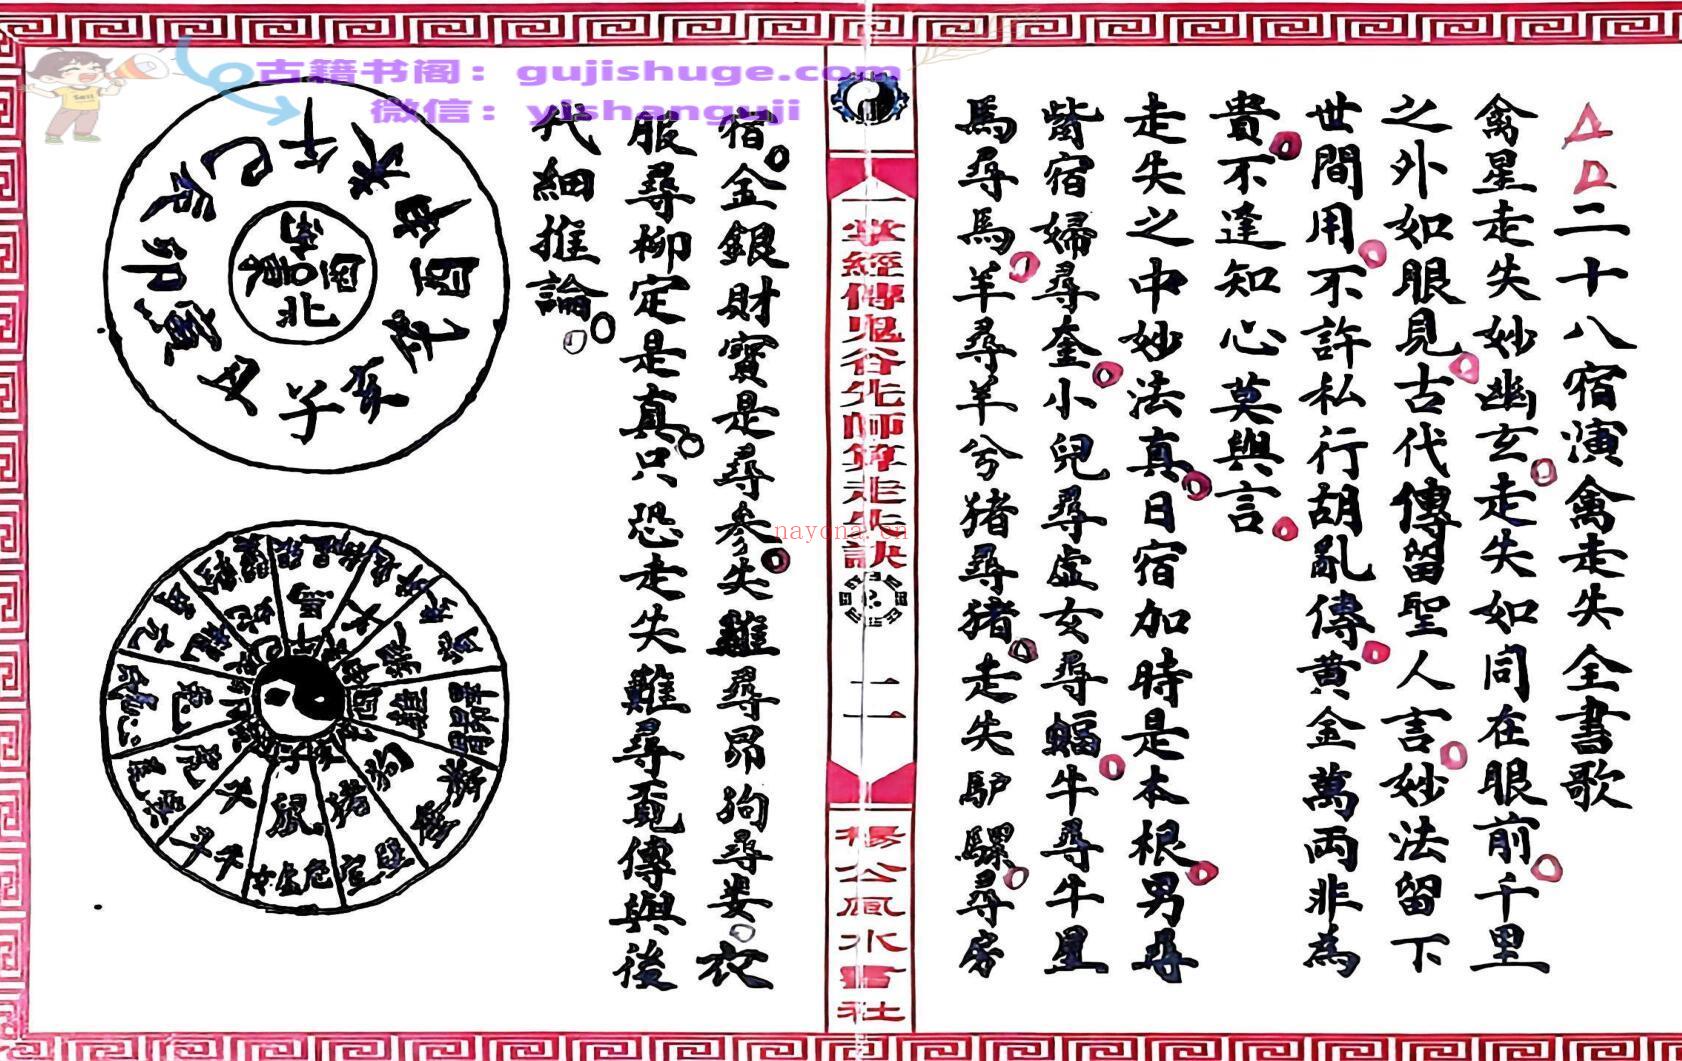 古籍书阁：gujishuge.com
微信：yishanguji
二十八宿演禽走失全書歌
禽星走失妙幽玄走失如同在眼前千里
之外如眼見古代傳留聖人言妙法留下
世間用不許私行胡亂傳黄金萬両非為
貴不逢知心莫與言
走失之中妙法真日宿加時是本根男尋
觜宿婦尋奎小兒尋虚女尋蝠牛尋牛星
馬尋馬羊尋羊兮猪尋猪走失驴騾尋房
一掌經傳鬼谷先師算走失訣
二一
楊公風水書社
nayona.cn
宿金銀財寳是尋参失雞尋昴狗尋婁衣
服尋柳定是真只恐走失難尋覓傳與後
代細推論
午
未
申
酉
戌
亥
子
丑
寅
卯
辰
巳
南
西
北
東
鼠
猪
狗
雞
猴
虎
兔
子
女虚危
室壁
奎
斗牛